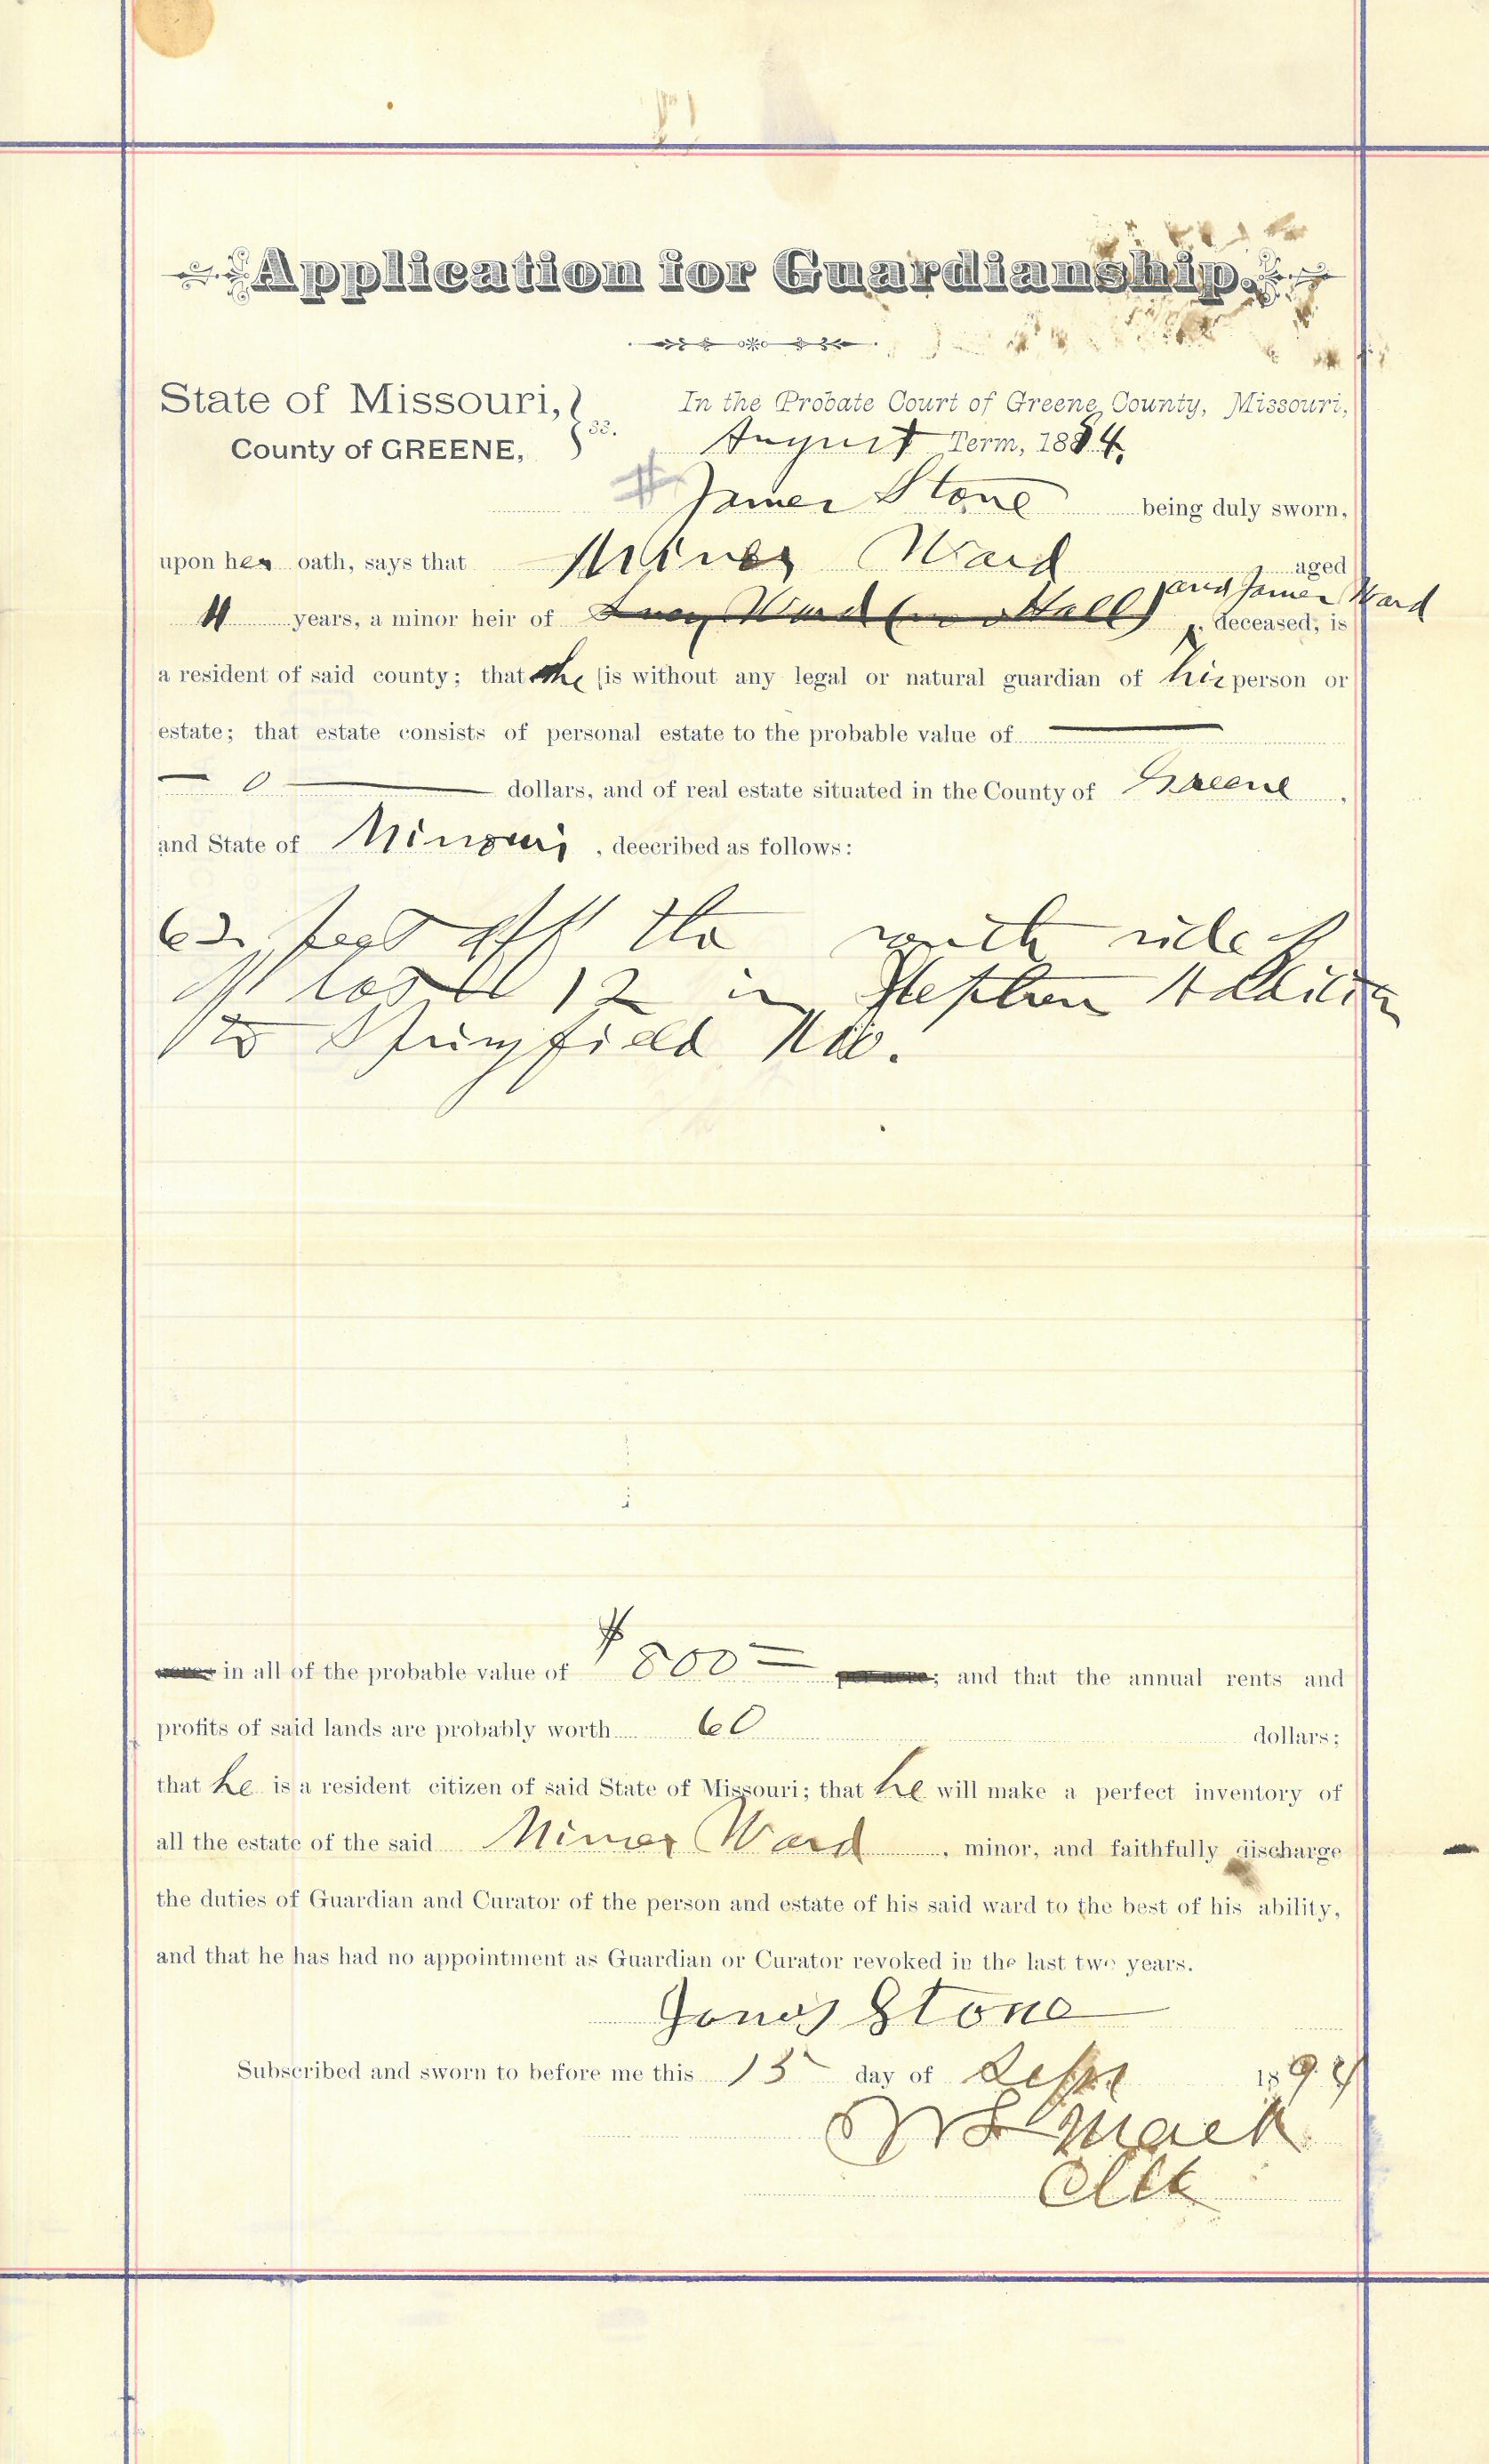 Application for Guardianship.
State of Missouri, } ss.
County of GREENE,
In the Probate Court of Greene County, Missouri,
August Term, 1894.
James Stone being duly sworn,
upon her oath, says that Ward aged
11 years, a minor heir of Lucy Ward Hall) and James Ward, deceased, is
a resident of said county; that he is without any legal or natural guardian of his person or
estate; that estate consists of personal estate to the probable value of
— 0 — dollars, and of real estate situated in the County of Greene,
and State of Missouri, deecribed as follows:
62 feet off the south side of
of lot 12 in Stephen Addition
to Springfield Mo.
acres in all of the probable value of $800= per acre; and that the annual rents and
profits of said lands are probably worth 60 dollars;
that he is a resident citizen of said State of Missouri; that he will make a perfect inventory of
all the estate of the said Ward, minor, and faithfully discharge
the duties of Guardian and Curator of the person and estate of his said ward to the best of his ability,
and that he has had no appointment as Guardian or Curator revoked in the last two years.
James Stone
Subscribed and sworn to before me this 15 day of Sept 1894
Mack
Clk